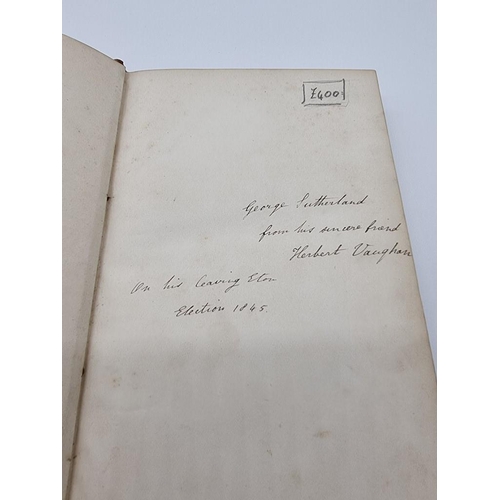 £400
George Sutherland
from his sincere friend
Herbert Vaughan
On his leaving Eton
Election 1845.